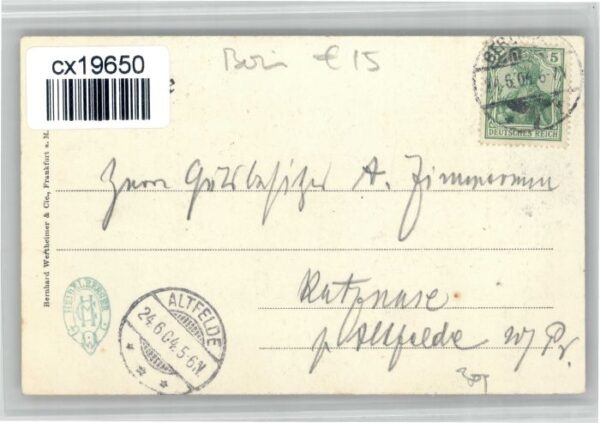 cx19650
€ 15
5
DEUTSCHES REICH
Herrn Gutsbesitzer A. Zimmermann
Katznase
p. Altfelde W/Pr.
Bernhard Wertheimer & Cie., Frankfurt a. M.
ALTFELDE
24.6.04.5-6N.